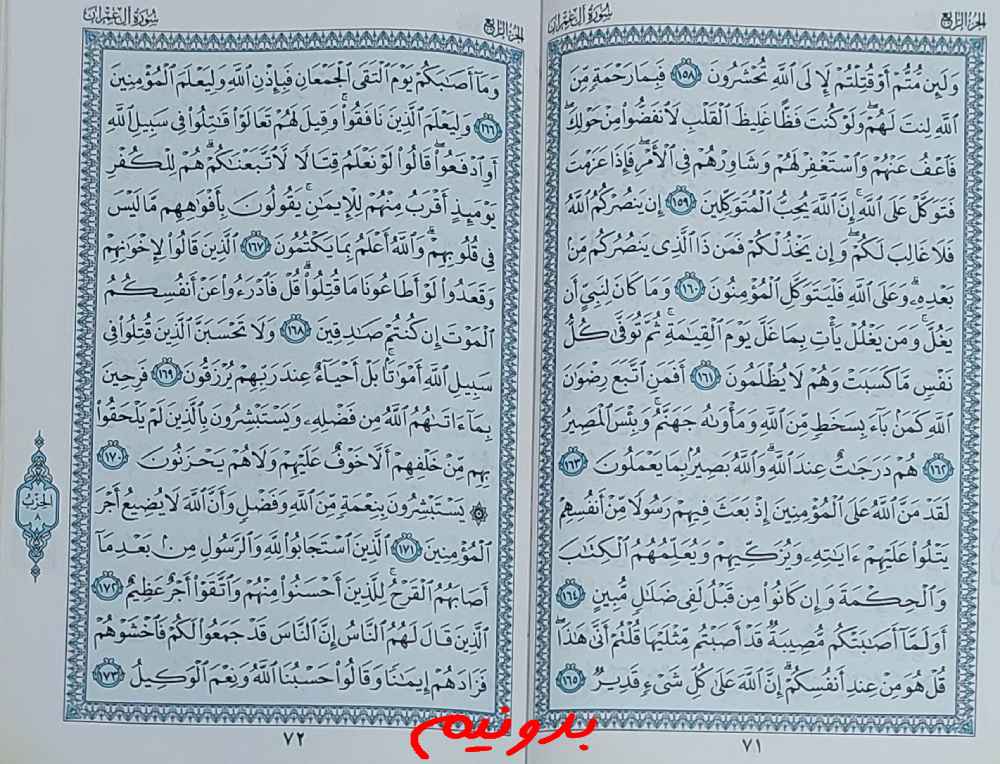 الجزء الرابع
سورة آل عمران
وَلَئِن مُّتُّمْ أَوْ قُتِلْتُمْ لَإِلَى اللَّهِ تُحْشَرُونَ ١٥٨ فَبِمَا رَحْمَةٍ مِّنَ
اللَّهِ لِنتَ لَهُمْ ۖ وَلَوْ كُنتَ فَظًّا غَلِيظَ الْقَلْبِ لَانفَضُّوا مِنْ حَوْلِكَ ۖ
فَاعْفُ عَنْهُمْ وَاسْتَغْفِرْ لَهُمْ وَشَاوِرْهُمْ فِي الْأَمْرِ ۖ فَإِذَا عَزَمْتَ
فَتَوَكَّلْ عَلَى اللَّهِ ۚ إِنَّ اللَّهَ يُحِبُّ الْمُتَوَكِّلِينَ ١٥٩ إِن يَنصُرْكُمُ اللَّهُ
فَلَا غَالِبَ لَكُمْ ۖ وَإِن يَخْذُلْكُمْ فَمَن ذَا الَّذِي يَنصُرُكُم مِّن
بَعْدِهِ ۗ وَعَلَى اللَّهِ فَلْيَتَوَكَّلِ الْمُؤْمِنُونَ ١٦٠ وَمَا كَانَ لِنَبِيٍّ أَن
يَغُلَّ ۚ وَمَن يَغْلُلْ يَأْتِ بِمَا غَلَّ يَوْمَ الْقِيَٰمَةِ ۚ ثُمَّ تُوَفَّىٰ كُلُّ
نَفْسٍ مَّا كَسَبَتْ وَهُمْ لَا يُظْلَمُونَ ١٦١ أَفَمَنِ اتَّبَعَ رِضْوَٰنَ
اللَّهِ كَمَن بَاءَ بِسَخَطٍ مِّنَ اللَّهِ وَمَأْوَىٰهُ جَهَنَّمُ ۚ وَبِئْسَ الْمَصِيرُ
١٦٢ هُمْ دَرَجَٰتٌ عِندَ اللَّهِ ۗ وَاللَّهُ بَصِيرٌ بِمَا يَعْمَلُونَ ١٦٣
لَقَدْ مَنَّ اللَّهُ عَلَى الْمُؤْمِنِينَ إِذْ بَعَثَ فِيهِمْ رَسُولًا مِّنْ أَنفُسِهِمْ
يَتْلُوا عَلَيْهِمْ ءَايَٰتِهِ وَيُزَكِّيهِمْ وَيُعَلِّمُهُمُ الْكِتَٰبَ
وَالْحِكْمَةَ وَإِن كَانُوا مِن قَبْلُ لَفِي ضَلَٰلٍ مُّبِينٍ ١٦٤
أَوَلَمَّا أَصَٰبَتْكُم مُّصِيبَةٌ قَدْ أَصَبْتُم مِّثْلَيْهَا قُلْتُمْ أَنَّىٰ هَٰذَا ۖ
قُلْ هُوَ مِنْ عِندِ أَنفُسِكُمْ ۗ إِنَّ اللَّهَ عَلَىٰ كُلِّ شَيْءٍ قَدِيرٌ ١٦٥
٧١
الجزء الرابع
سورة آل عمران
وَمَا أَصَٰبَكُمْ يَوْمَ الْتَقَى الْجَمْعَانِ فَبِإِذْنِ اللَّهِ وَلِيَعْلَمَ الْمُؤْمِنِينَ
١٦٦ وَلِيَعْلَمَ الَّذِينَ نَافَقُوا ۚ وَقِيلَ لَهُمْ تَعَالَوْا قَٰتِلُوا فِي سَبِيلِ اللَّهِ
أَوِ ادْفَعُوا ۖ قَالُوا لَوْ نَعْلَمُ قِتَالًا لَّاتَّبَعْنَٰكُمْ ۗ هُمْ لِلْكُفْرِ
يَوْمَئِذٍ أَقْرَبُ مِنْهُمْ لِلْإِيمَٰنِ ۚ يَقُولُونَ بِأَفْوَٰهِهِم مَّا لَيْسَ
فِي قُلُوبِهِمْ ۗ وَاللَّهُ أَعْلَمُ بِمَا يَكْتُمُونَ ١٦٧ الَّذِينَ قَالُوا لِإِخْوَٰنِهِمْ
وَقَعَدُوا لَوْ أَطَاعُونَا مَا قُتِلُوا ۗ قُلْ فَادْرَءُوا عَنْ أَنفُسِكُمُ
الْمَوْتَ إِن كُنتُمْ صَٰدِقِينَ ١٦٨ وَلَا تَحْسَبَنَّ الَّذِينَ قُتِلُوا فِي
سَبِيلِ اللَّهِ أَمْوَٰتًا ۚ بَلْ أَحْيَاءٌ عِندَ رَبِّهِمْ يُرْزَقُونَ ١٦٩ فَرِحِينَ
بِمَا ءَاتَىٰهُمُ اللَّهُ مِن فَضْلِهِ وَيَسْتَبْشِرُونَ بِالَّذِينَ لَمْ يَلْحَقُوا
بِهِم مِّنْ خَلْفِهِمْ أَلَّا خَوْفٌ عَلَيْهِمْ وَلَا هُمْ يَحْزَنُونَ ١٧٠
۞ يَسْتَبْشِرُونَ بِنِعْمَةٍ مِّنَ اللَّهِ وَفَضْلٍ وَأَنَّ اللَّهَ لَا يُضِيعُ أَجْرَ
الْمُؤْمِنِينَ ١٧١ الَّذِينَ اسْتَجَابُوا لِلَّهِ وَالرَّسُولِ مِن بَعْدِ مَا
أَصَابَهُمُ الْقَرْحُ ۚ لِلَّذِينَ أَحْسَنُوا مِنْهُمْ وَاتَّقَوْا أَجْرٌ عَظِيمٌ ١٧٢
الَّذِينَ قَالَ لَهُمُ النَّاسُ إِنَّ النَّاسَ قَدْ جَمَعُوا لَكُمْ فَاخْشَوْهُمْ
فَزَادَهُمْ إِيمَٰنًا وَقَالُوا حَسْبُنَا اللَّهُ وَنِعْمَ الْوَكِيلُ ١٧٣
الحزب
٨
٧٢
بدونیم